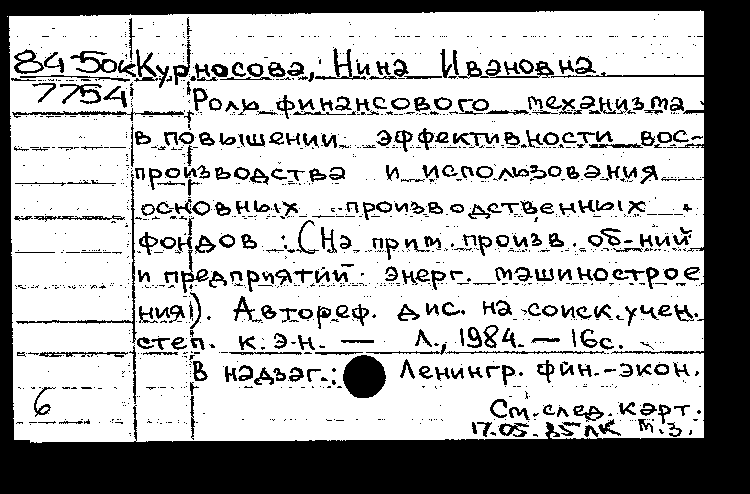 84-5ок Курносова, Нина Ивановна.
7754 Роль финансового механизма
в повышении эффективности вос-
производства и использования
основных производственных
фондов : (На прим. произв. об-ний
и предприятий энерг. машинострое
ния). Автореф. дис. на соиск. учен.
степ. к.э.н. — Л., 1984. — 16с.
В надзаг.: Ленингр. фин.-экон.
6 См. след. карт.
17.05.85 ЛК м.з.